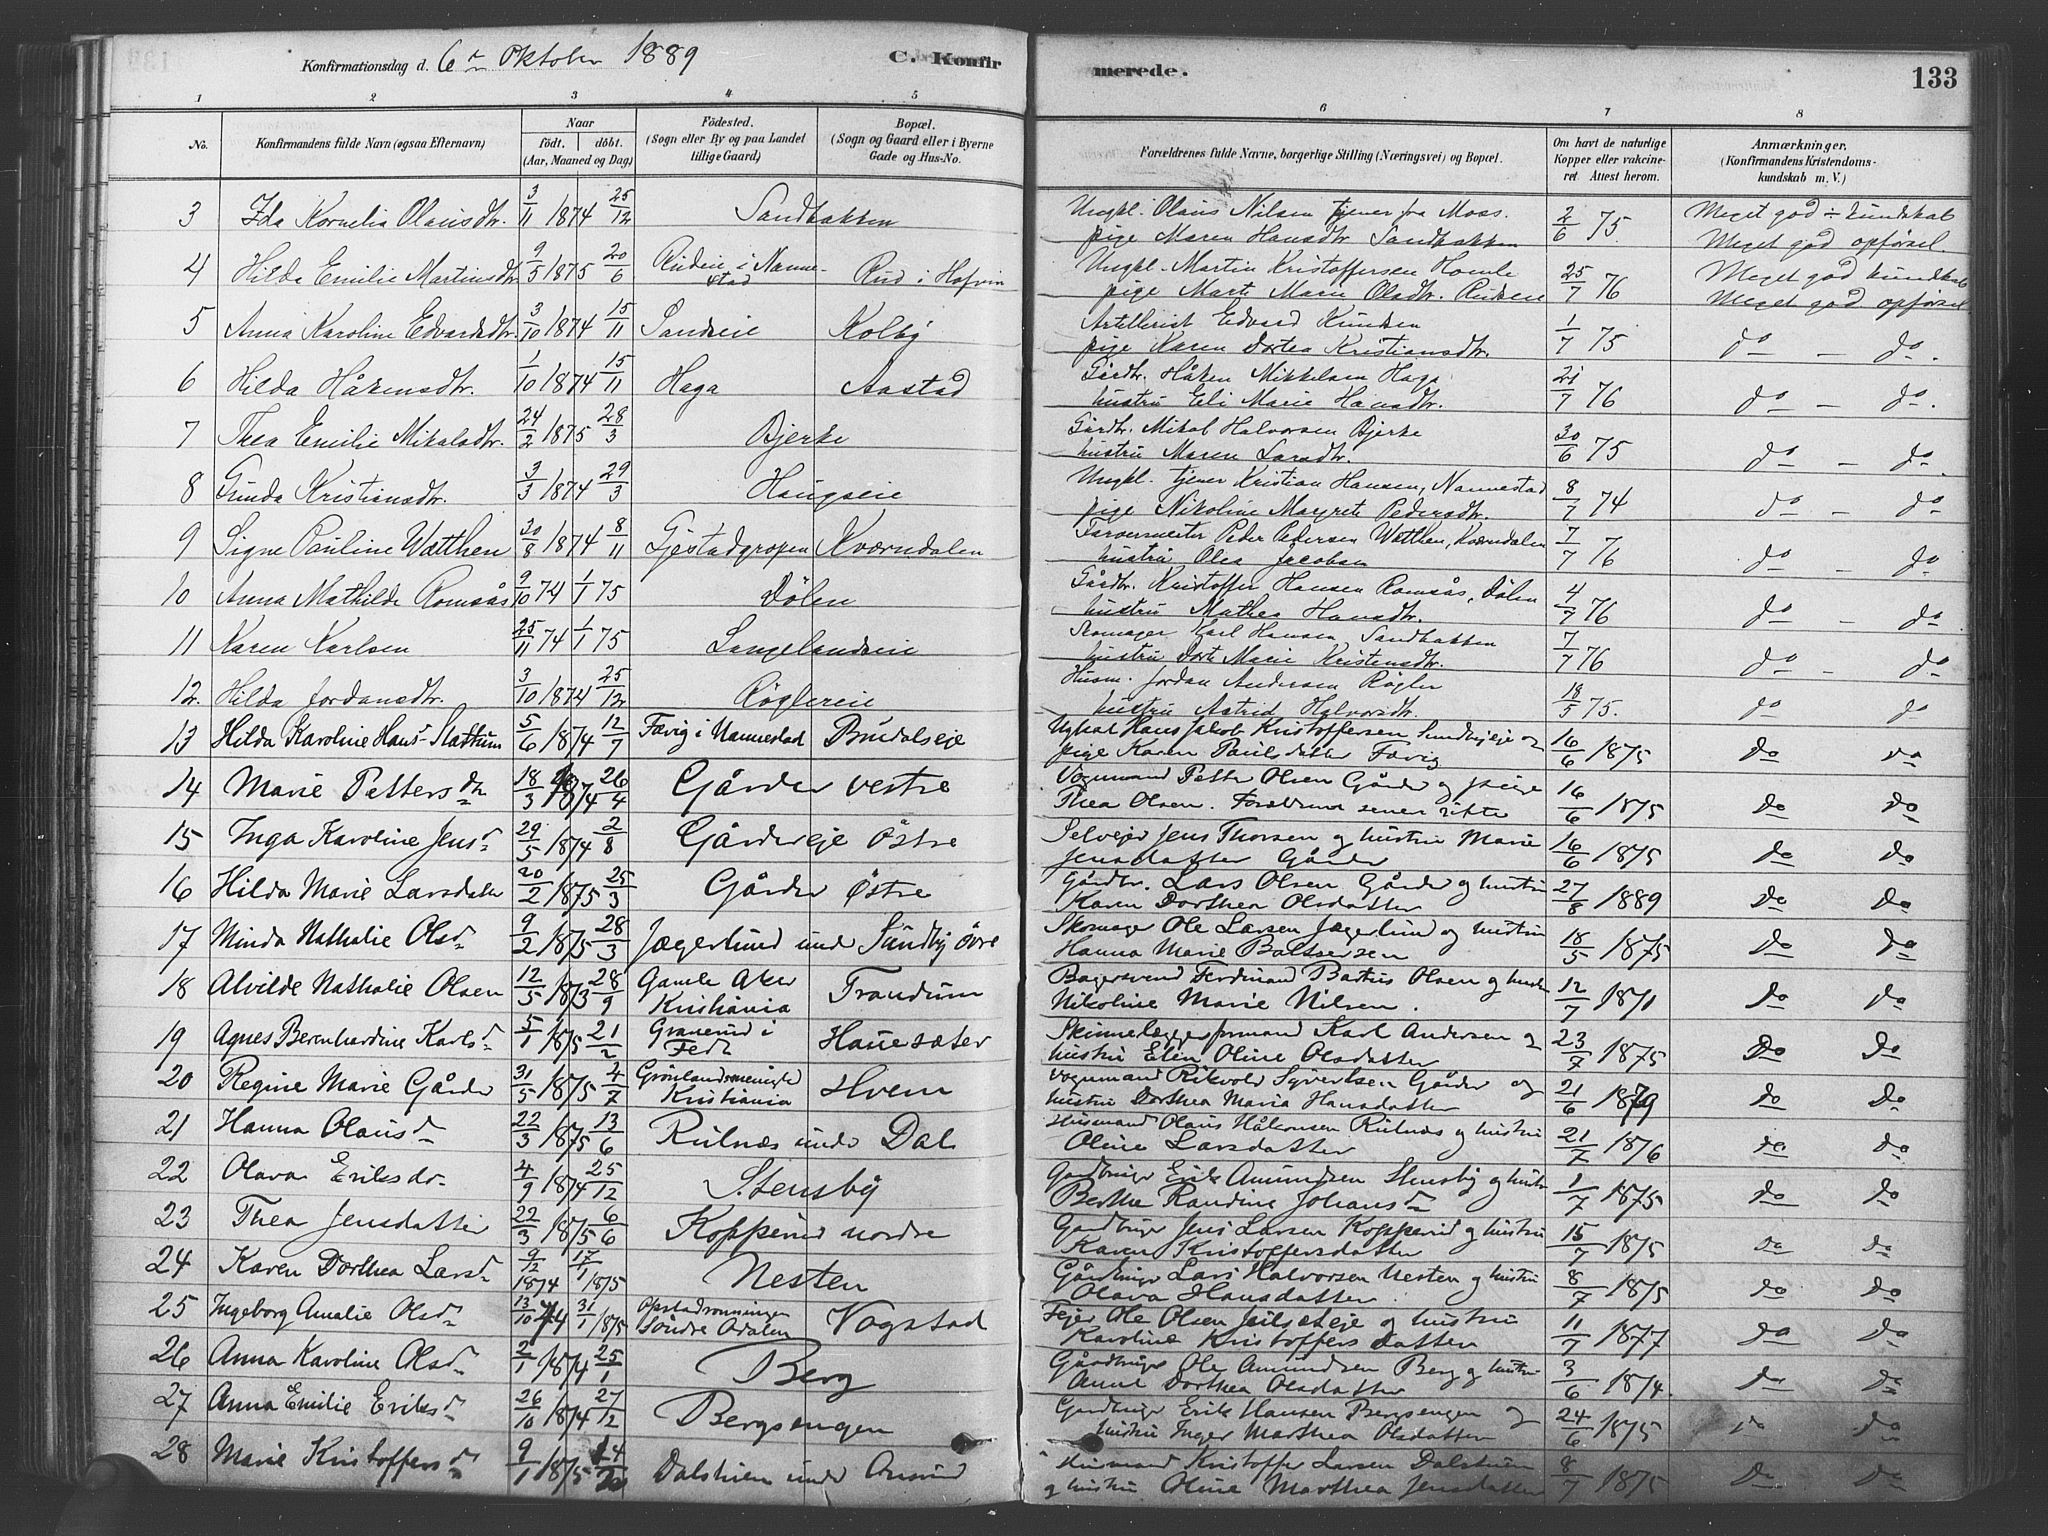 Konfirmationsdag d. 6te Oktober 1889 C. Konfirmerede. 133
1 2 3 4 5 6 7 8
No. Konfirmandens fulde Navn (øgsaa Efternavn) Naar födt. döbt. (Aar, Maaned og Dag) Födested. (Sogn eller By og paa Landet tillige Gaard) Bopæl. (Sogn og Gaard eller i Byerne Gade og Hus-No. Forældrenes fulde Navne, borgerlige Stilling (Næringsvei) og Bopæl. Om havt de naturlige Kopper eller vakcineret. Attest herom. Anmærkninger. (Konfirmandens Kristendomskundskab m. V.)
3 Ida Kornelia Olausdtr. 3/11 1874 25/12 Sandbakken Ungkl. Olaus Nilsen tjener fra Moss. 2/6 75 Meget god kundskab
pige Maren Hansdtr Sandbakken Meget god opförsel
4 Hilda Emilie Martinsdtr 9/5 1875 20/6 Rudeie i Nannestad Rud i Hofvin Ungkl. Martin Kristoffersen Homle 25/7 76 Meget god kundskab
pige Marte Marie Olsdtr. Rudseie Meget god opførsel
5 Anna Karoline Edvardsdtr. 3/10 1874 15/11 Sandseie Kolby Artillerist Edvard Knudsen 1/7 75 do - do.
pige Karen Dortea Kristiansdtr.
6 Hilda Håkensdtr. 1/10 1874 15/11 Haga Aastad Gårdbr. Håken Mikkelsen Haga 21/7 76 do - do.
hustru Eli Marie Hansdtr.
7 Thea Emilie Mikalsdtr. 24/2 1875 28/3 Bjerke Gårdbr. Mikal Halvorsen Bjerke 30/6 75 do - do
hustru Maren Larsdtr.
8 Gunda Kristiansdtr. 3/3 1874 29/3 Haugseie Ungkl. tjener Kristian Hansen, Nannestad 8/7 74 do - do
pige Nikoline Margrete Pedersdtr.
9 Signe Pauline Wætthen 30/8 1874 8/11 Gjestadgropen Kværndalen Farvermester Peder Pedersen Wætthen, Kværndalen 7/7 76 do - do
hustru Olea Jacobsen
10 Anna Mathilde Romsås 9/10 74 1/1 75 Dölen Gårdbr. Kristoffer Hansen Romsås, Dölen 4/7 76 do - do
hustru Mathea Hansdtr.
11 Karen Karlsen 25/11 74 1/1 75 Langelandseie Skomager Karl Hansen, Sandbakken 7/7 76 do - do
hustru Dorte Marie Kristensdtr.
12. Hilda Jordansdtr. 3/10 1874 25/12 Röglereie Husm. Jordan Andersen Røgler 18/5 75. do do
hustru Astrid Halvorsdtr.
13 Hilda Karoline Hans- Slattum 5/6 1874 12/7 Favig i Nannestad Brudalseje Ugkal Hans Jakob Kristoffersen Sundbyeje og 16/6 1875 do do
pige Karen Paulsdatter Favig
14 Marie Pettersdtr 18/3 1874 26/4 Gårder vestre Vognmand Petter Olsen Gårder og pige 16/6 1875 do do
Thea Olsen. Forældrene senere gifte
15 Inga Karoline Jensd 29/5 1874 2/8 Gårdereje Østre Selvejer Jens Thorsen og hustru Marie 16/6 1875 do do
Jensdatter Gårder
16 Hilda Marie Larsdatter 20/2 1875 25/3 Gårder Østre Gårdbr. Lars Olsen Gårder og hustru 27/8 1889 do do
Karen Dorthea Olsdatter
17 Minda Nathalie Olsd 9/2 1875 28/3 Jægerlund under Sundby øvre Skomager Ole Larsen Jægerlund og hustru 18/5 1875 do do
Hanna Marie Baltsersen
18 Alvilde Nathalie Olsen 12/5 1873 28/9 Gamle Aker Kristiania Trandum Bagersvend Ferdinand Bastius Olsen og hustru 12/7 1871 do do
Nikoline Marie Nilsen.
19 Agnes Bernhardine Karlsd 5/1 1875 21/2 Hauesæter Skinnelæggerformand Karl Andersen og 23/7 1875 do do
hustru Elen Oline Olsdatter
20 Regine Marie Gårder 31/5 1875 4/7 Grönlandsmenighed Kristiania Hvem Vognmand Rikvold Syvertsen Gårder og 21/6 1879 do do
hustru Dorthea Maria Hansdatter
21 Hanna Olausd 22/3 1875 13/6 Rulnæs under Dal Husmand Olaus Håkonsen Rulnæs og hustru 21/7 1876 do do
Oline Larsdatter
22 Olava Eriksdr. 4/9 1874 25/12 Stensby Gardbruger Erik Amundsen Stensby og hustru 1/7 1875 do do
Berthe Randine Johansd
23 Thea Jensdatter 22/3 1875 6/6 Kopperud nordre Gardbruger Jens Larsen Kopperud og hustru 15/7 1875 do do
Karen Kristoffersdatter
24 Karen Dorthea Larsd 9/12 1874 17/1 1875 Nesten Gårdbruger Lars Halvorsen Nesten og hustru 8/7 1875 do do
Olava Hansdatter.
25 Ingeborg Amalie Olsd 13/10 74 31/1 1875 Opstadrønningen Söndre Odalen Vogstad Fejer Ole Olsen Julseteje og hustru 11/7 1877 do do
Karoline Kristoffersdatter
26 Anna Karoline Olsd 2/1 1874 25/1 Berg Gårdbruger Ole Amundsen Berg og hustru 3/6 1874. do do
Anne Dorthea Olsdatter
27 Anna Emilie Eriksd 26/10 1874 27/12 Bergsengen Gardbruger Erik Hansen Bergsengen og 24/6 1875 do do
hustru Inger Marthea Olsdatter
28 Marie Kristoffersd 9/1 1875 Dalstuen under Husmand Kristoffer Larsen Dalstuen 8/7 1875 do do
og hustru Oline Marthea Jensdatter